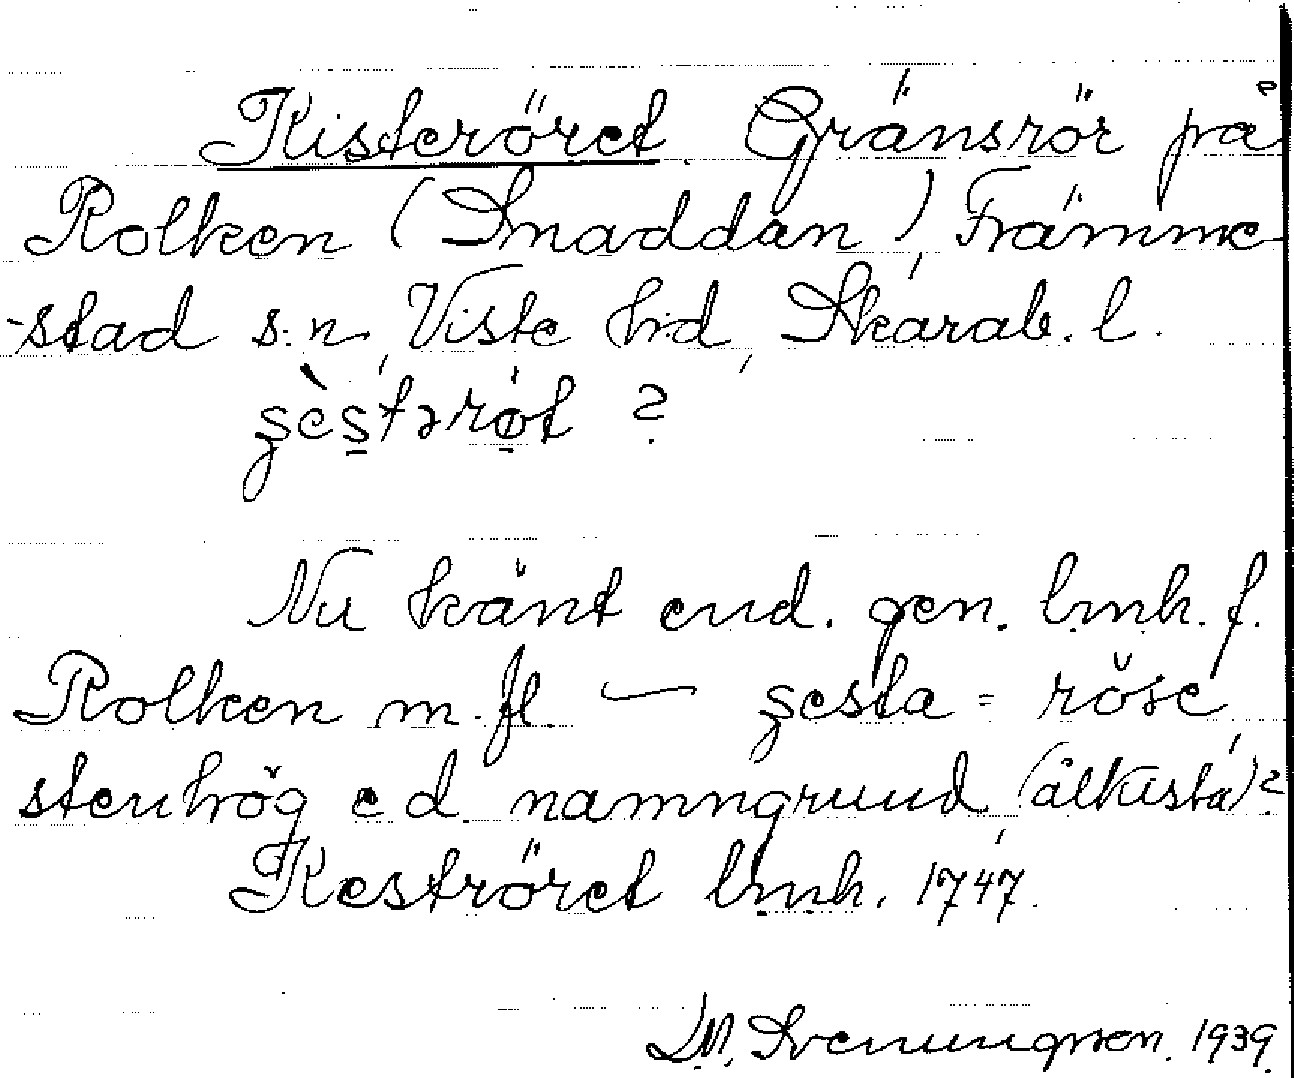 Kisteröret. Gränsrör på
Rolken (Snaddan), Främme
-stad s:n, Viste hrd, Skarab. l.
?
Nu känt end. gen. lmh. f.
Rolken m. fl. — = röse,
stenhög e d namngrund (ålkista)?
Keströret lmh. 1747.
D.N. Svenungsson. 1939.